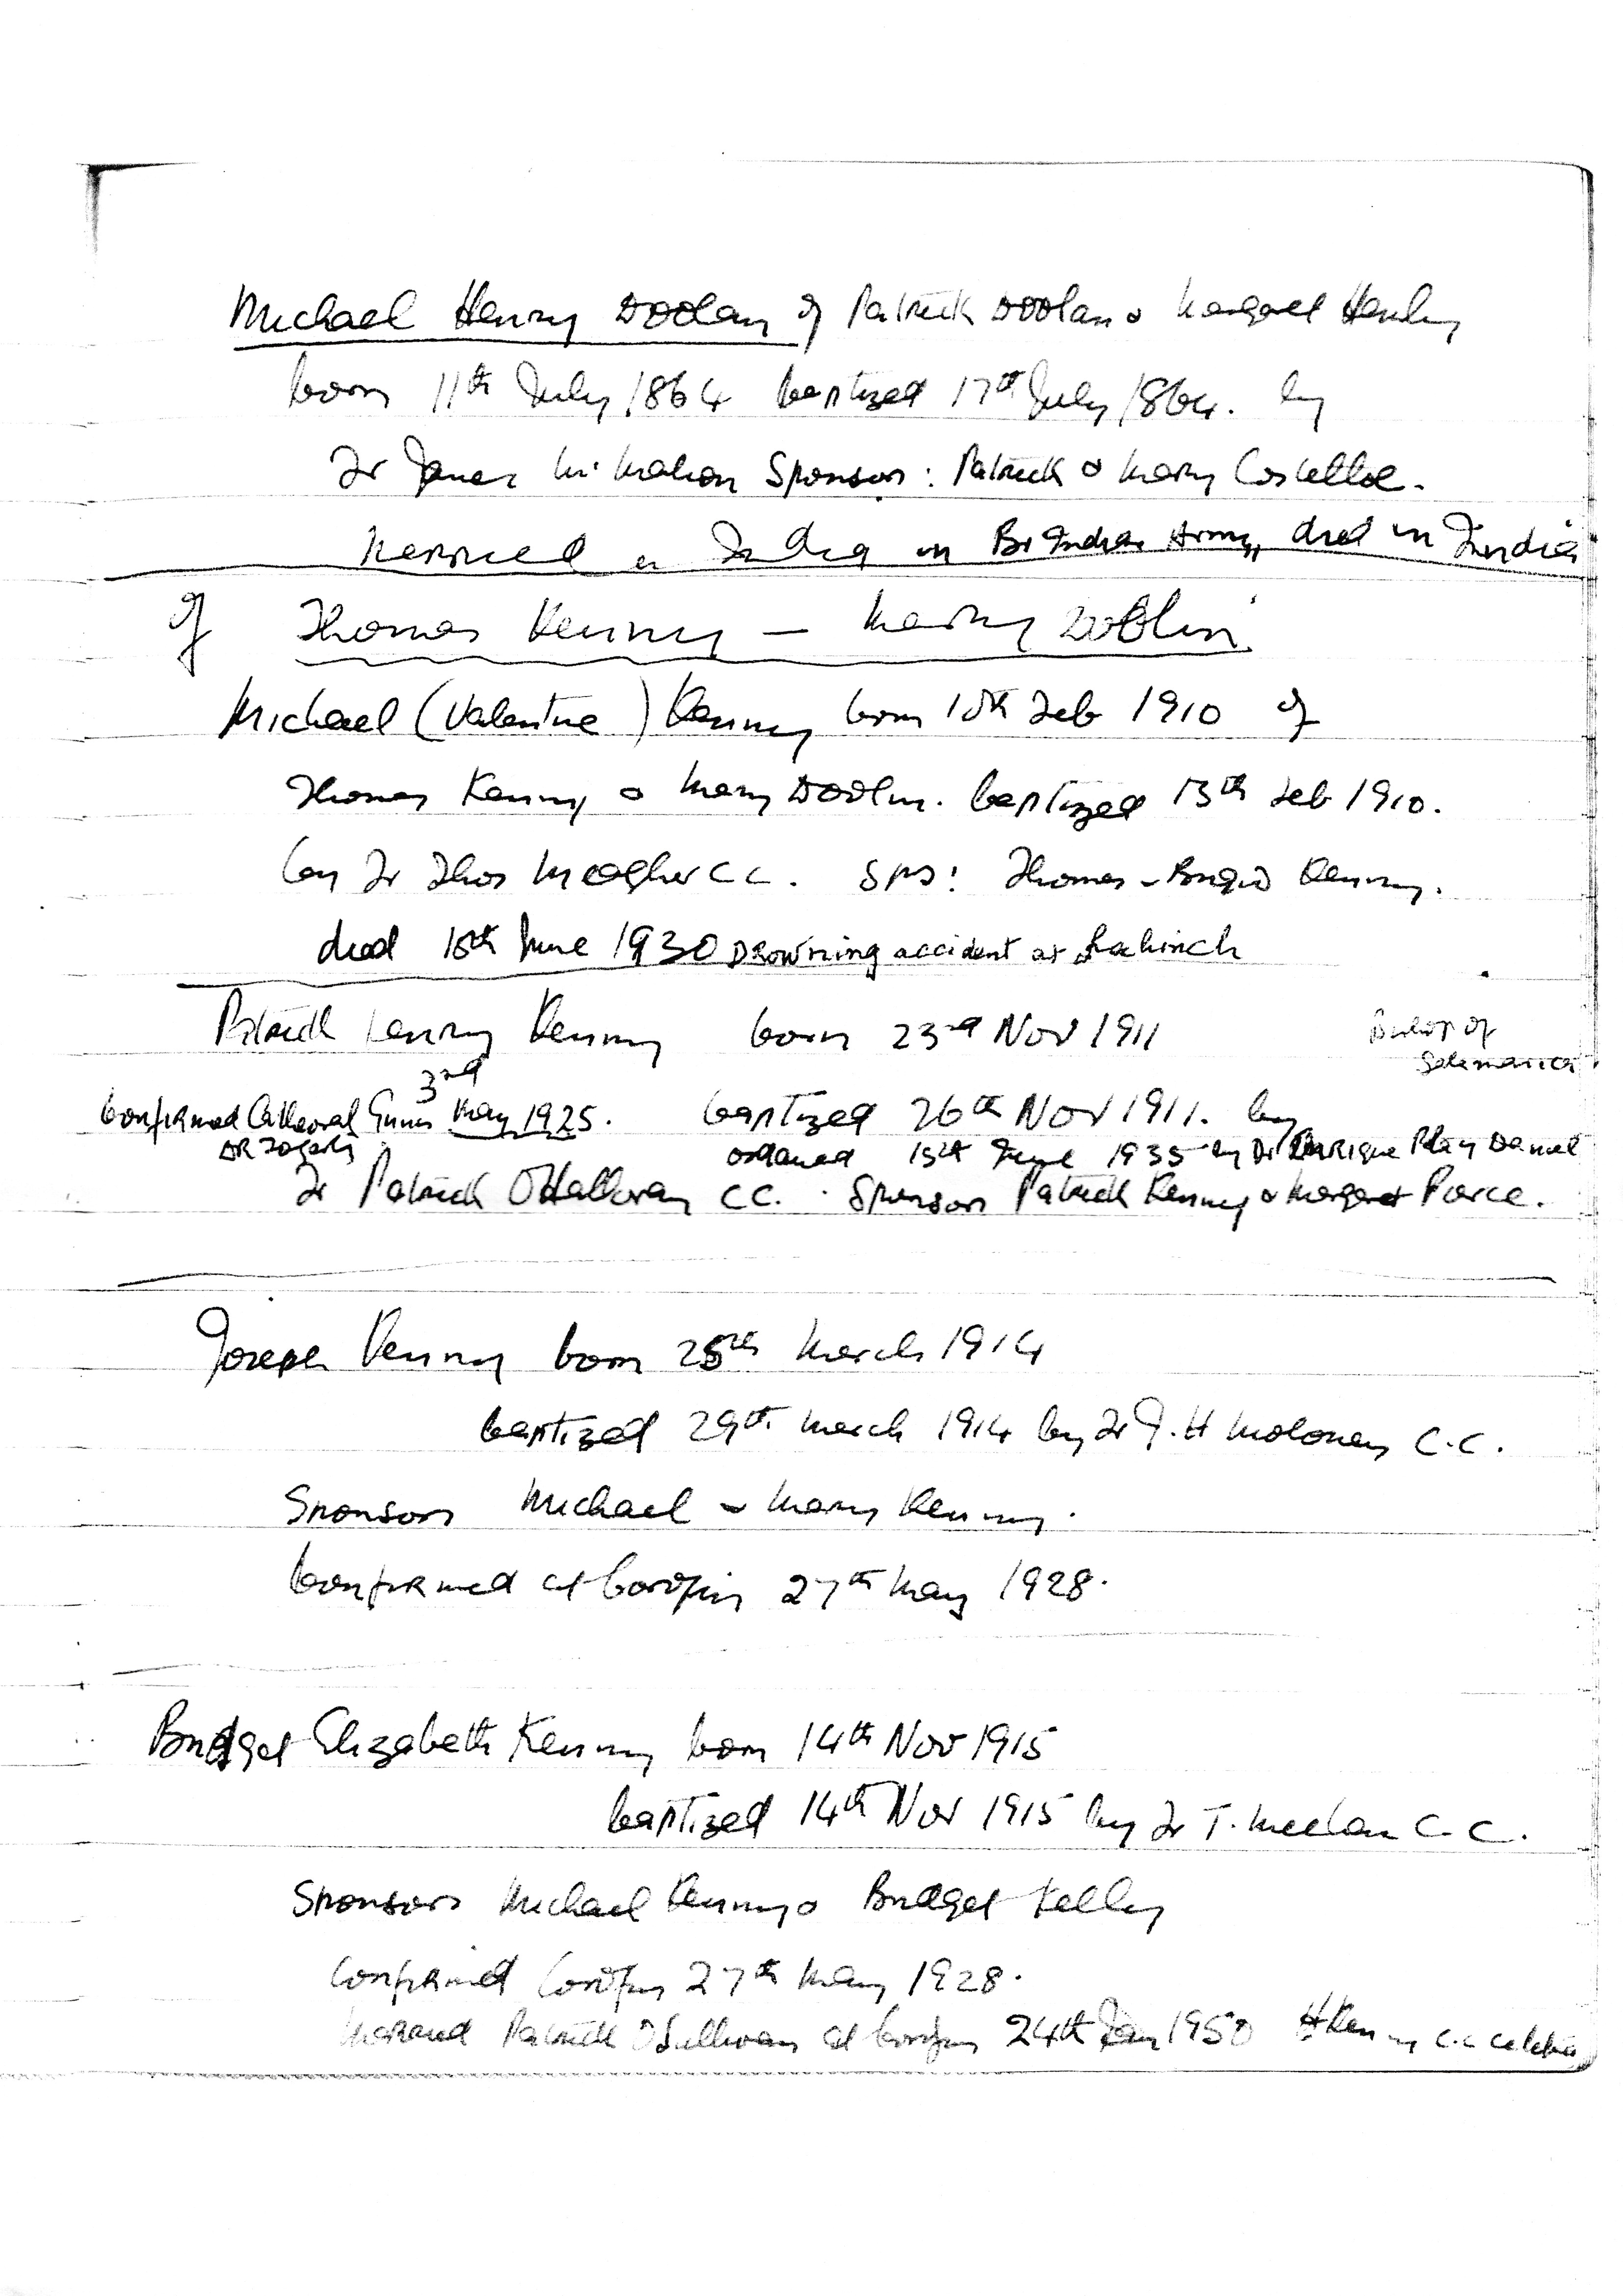 Michael Henry Doolan of Patrick Doolan & Margaret Henley
born 11th July 1864 baptized 17th July 1864. by
Fr James McMahon Sponsors: Patrick & Mary Costelloe.
Married in India in Br Indian Army, died in India
of Thomas Kenny – Mary Doolin
Michael (Valentine) Kenny born 10th Feb 1910 of
Thomas Kenny & Mary Doolin. baptized 13th Feb 1910.
by Fr Thos Meagher CC. Sps: Thomas & Brigid Kenny.
died 16th June 1930 Drowning accident at Lahinch
Patrick Henry Kenny born 23rd Nov 1911
Bishop of
Salamanca
3rd
Confirmed Cathedral Ennis May 1925. baptized 26th Nov 1911. by
DR Fogarty ordained 15th June 1935 by Dr Enrique Play Daniel
Fr Patrick O'Halloran CC. Sponsors Patrick Kenny & Margaret Pierce.
Joseph Kenny born 25th March 1914
baptized 29th March 1914 by Fr J.H Moloney C.C.
Sponsors Michael & Mary Kenny.
Confirmed at Corofin 27th May 1928.
Bridget Elizabeth Kenny born 14th Nov 1915
baptized 14th Nov 1915 by Fr T. Meehan C.C.
Sponsors Michael Kenny & Bridget Kelly
Confirmed Corofin 27th May 1928.
Married Patrick O'Sullivan at Corofin 24th Jan 1950 H Kenny C.C